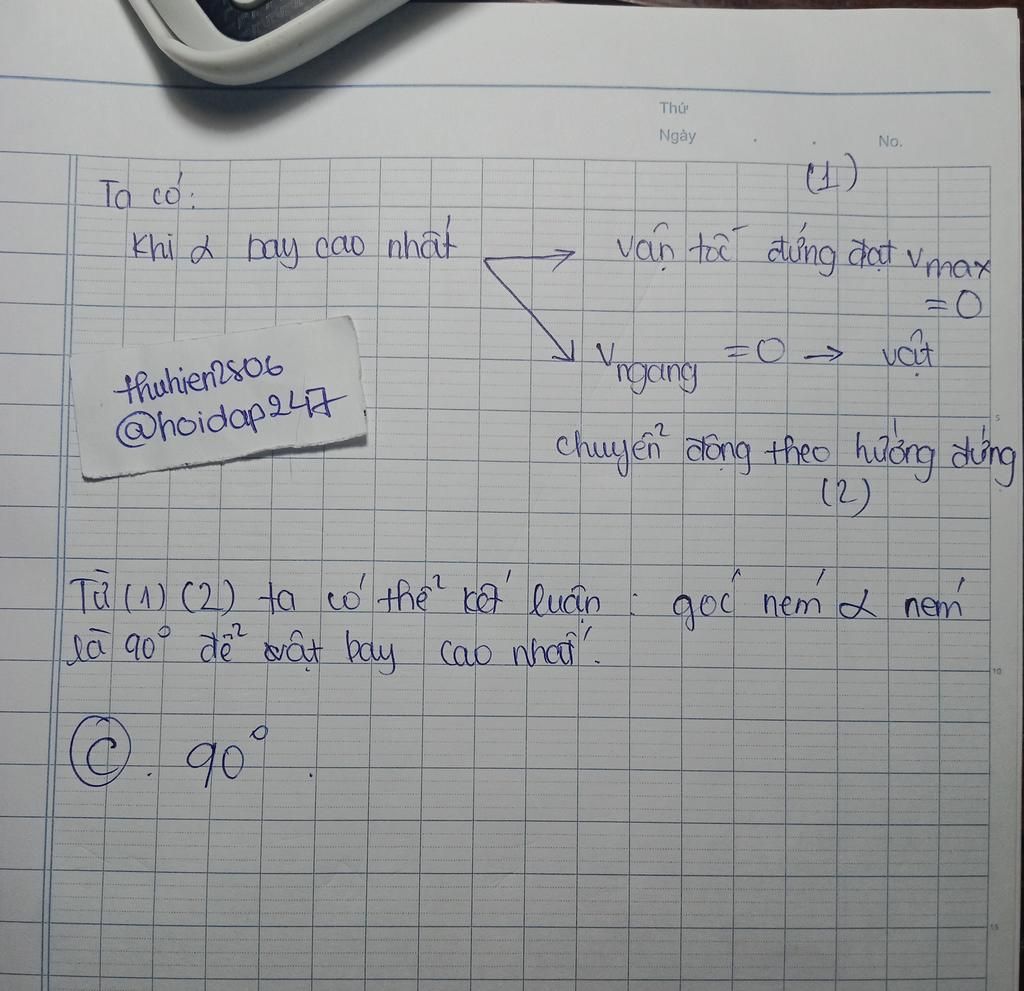 Thứ
Ngày . . No.
(1)
Ta có:
Khi α bay cao nhất → vận tốc đứng đạt vmax
= 0
→ vngang = 0 → vật
thuhien2806
@hoidap247
chuyển động theo hướng đứng
5
(2)
Từ (1) (2) ta có thể kết luận : góc ném α ném
là 90° để vật bay cao nhất.
10
C. 90°.
15